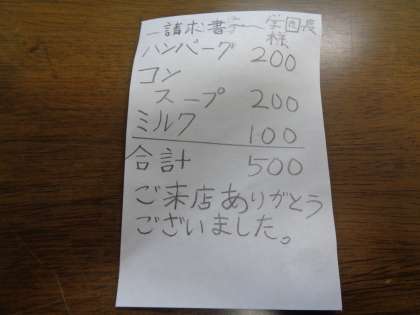 請求書 学園長
様
ハンバーグ 200
コン
スープ 200
ミルク 100
合計 500
ご来店ありがとう
ございました。